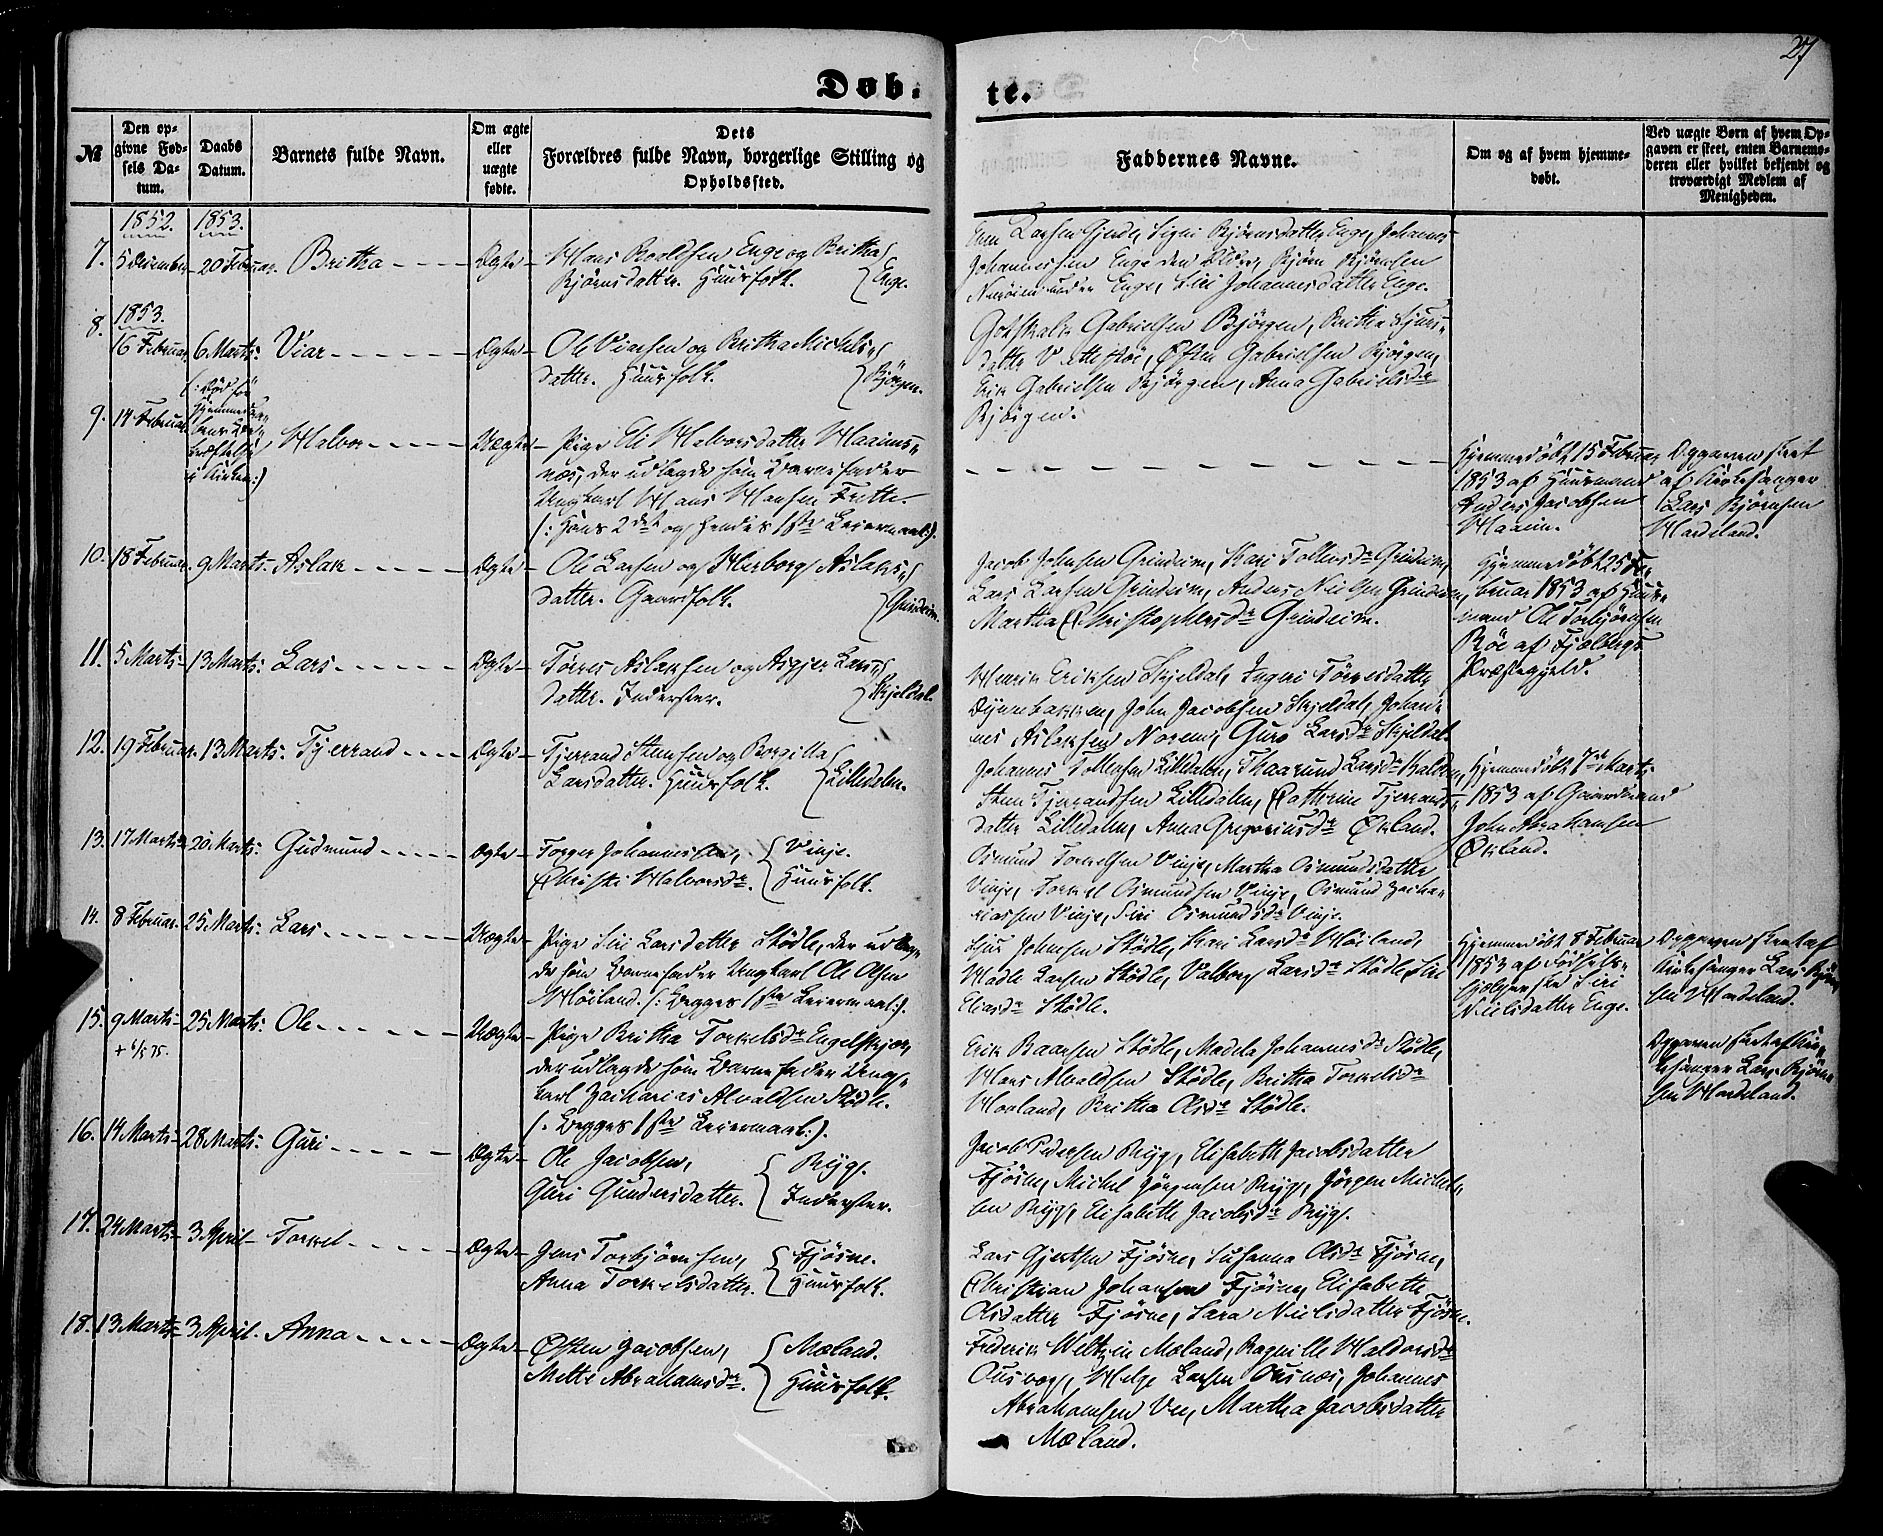 27
Døb-
te.
№
Den op-
givne Fød-
sels Da-
tum.
Daabs
Datum.
Barnets fulde Navn.
Om ægte
eller
uægte
fødte.
Dets
Forældres fulde Navn, borgerlige Stilling og
Opholdssted.
Faddernes Navne.
Om og af hvem hjemme-
døbt.
Ved uægte Børn af hvem Op-
gaven er skeet, enten Barnemo-
deren eller hvilket bekjendt og
troværdigt Medlem af
Menigheden.
1852. 1853.
7. 5 Decemb. 20 Februar. Britha Ægte
Hans Roaldsen Enge og Britha
Bjørnsdatter. Huusfolk. Enge.
Larsen Gjerde, Sigri Bjørnsdatter Enge, Johannes
Johannessen Enge den Ældre, Bjørn Bjørnsen
under Enge, Siri Johannesdatter Enge.
8. 1853.
16 Februar 6 Marts: Viar Ægte
Ole Viarsen og Britha Michels-
datter. Huusfolk. Bjørgen.
Gotskalk Gabrielsen Bjørgen, Britha
datter, Østen Gabrielsen Bjørgen,
Erik Gabrielsen Bjørgen, Anna Gabrielsdr
Bjørgen.
9. 14 Februar (: Død før
Hjemmedaa-
bens
i Kirken:)
Halvor Uægte
Pige Eli Halvorsdatter Haaims-
næs, der udlagde som Barnefader
Ungkarl Hans Hansen
(: Hans 2det og hendes 1ste Leiermaal:).
Hjemmedøbt 15 Februar
1853 af Huusmand
Anders Jacobsen
Haaim.
Opgaven skeet
af Kirkesanger
Lars Bjørnsen
Hardeland.
10. 18 Februar 9 Marts Aslak Ægte
Ole Larsen og Herborg Aslaks-
datter. Gaardfolk. Grindeim.
Jacob Johnsen Grindeim, Kari Tollevsdr Grindeim,
Lars Larsen Grindeim, Anders Nielsen Grindeim,
Martha Christophersdr Grindeim.
Hjemmedøbt 25 Fe-
bruar 1853 af Huus-
mand Ole Torbjørnsen
Røe af Fjelbergs
Præstegjeld.
11. 5 Marts 13 Marts: Lars Ægte
Tørres Aslaksen og Asgjer Lars-
datter. Inderster. Skjeldal.
Henrik Eriksen Skjeldal, Ingeri Tørresdatter
John Jacobsen Skjeldal, Johan-
nes Aslaksen, Guro Larsdr Skjeldal.
12. 19 Februar. 13 Marts: Tjerrand Ægte
Tjerrand Stensen og Borgilla
Larsdatter. Huusfolk. Lilledalen.
Johannes Tollevsen Lilledalen, Larsdr
Sten Tjerrandsen Lilledalen, Cathrine Tjerrands-
datter Lilledalen, Anna Gregoriusdr Økland.
Hjemmedøbt 7de Marts
1853 af Gaardmand
John Abrahamsen
Økland.
13. 17 Marts 20 Marts: Gudmund Ægte
Torger Johannessen,
Christi Halvorsdr. Vinje.
Huusfolk.
Osmund Torkelsen Vinje, Martha Osmundsdatter
Vinje, Torkel Osmundsen Vinje, Osmund Zacha-
riassen Vinje, Siri Osmundsdr Vinje.
14. 8 Februar. 25 Marts: Lars Uægte
Pige Siri Larsdatter Stødle, der udlag-
de som Barnefader Ungkarl Ole Olsen
Høiland. (: Begges 1ste Leiermaal:).
Johnsen Stødle, Kari Larsdr Høiland,
Larsen Stødle, Valborg Larsdr Stødle, Siri
Eliasdr Stødle.
Hjemmedøbt 8 Februar
1853 af Fødsels-
hjelperske Siri
Nielsdatter Enge.
Opgaven skeet af
Kirkesanger Lars Bjørn-
sen Hardeland.
15. 9 Marts 25 Marts: Ole Uægte
+ 6/5 75.
Pige Britha Torkelsdr Engelskjøn,
der udlagde som Barnefader Ung-
karl Zacharias Alvaldsen Stødle.
(: Begges 1ste Leiermaal:).
Erik Baarsen Stødle, Madela Johannesdr Stødle,
Hans Alvaldsen Stødle, Britha Torkelsdr
Britha Olsdr Stødle.
Opgaven skeet af Kir-
kesanger Lars Bjørn-
sen Hardeland.
16. 14 Marts 28 Marts: Guri Ægte
Ole Jacobsen,
Guri Gundersdatter. Ryg.
Inderster.
Jacob Pedersen Ryg, Elisabeth Jacobsdatter
Fjøsne, Michel Jørgensen Ryg, Jørgen Michel-
sen Ryg, Elisabeth Jacobsdr Ryg.
17. 24 Marts 3 April Torkel Ægte
Jens Torbjørnsen,
Anna Torkelsdatter. Fjøsne.
Huusfolk.
Lars Gjertsen Fjøsne, Susanna Olsdr Fjøsne,
Christian Johansen Fjøsne, Elisabeth
Olsdatter Fjøsne, Sara Nielsdatter Fjøsne.
18. 13 Marts 3 April. Anna Ægte
Østen Jacobsen,
Mette Abrahamsdr. Mæland.
Huusfolk.
Frederik Weltzin Mæland, Ragnille Haldorsdr
Ousvog, Helge Larsen Ousnes, Johannes
Abrahamsen Ven, Martha Jacobsdatter
Mæland.